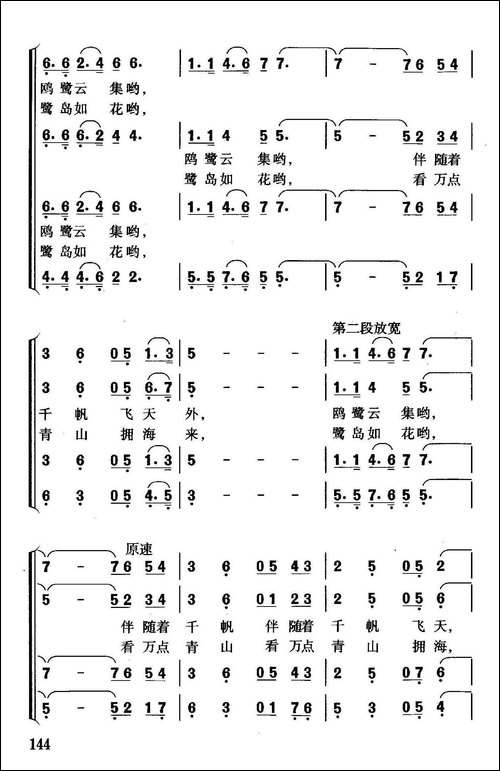 6.6 2.4 6 6. | 1.1 4.6 7 7. | 7 - 76 54
鸥鹭云 集哟，
鹭岛如 花哟，
6.6 6.2 4 4. | 1.1 4 5 5. | 5 - 52 34
鸥鹭云 集哟， 伴随着
鹭岛如 花哟， 看万点
6.6 2.4 6 6. | 1.1 4.6 7 7. | 7 - 76 54
鸥鹭云 集哟，
鹭岛如 花哟，
4.4 4.6 2 2. | 5.5 7.6 5 5. | 5 - 52 17
第二段放宽
3 6 05 1.3 | 5 - - - | 1.1 4.6 7 7.
3 6 05 6.7 | 5 - - - | 1.1 4 5 5.
千 帆 飞天 外， 鸥鹭云 集哟，
青 山 拥海 来， 鹭岛如 花哟，
3 6 05 1.3 | 5 - - - | 1.1 4.6 7 7.
6 3 05 4.5 | 3 - - - | 5.5 7.6 5 5.
原速
7 - 76 54 | 3 6 05 43 | 2 5 05 2
5 - 52 34 | 3 6 01 23 | 2 5 05 6
伴随着 千 帆 伴随着 千 帆 飞天，
看万点 青 山 看万点 青 山 拥海，
7 - 76 54 | 3 6 05 43 | 2 5 07 6
5 - 52 17 | 6 3 01 21 | 5 3 05 4
144